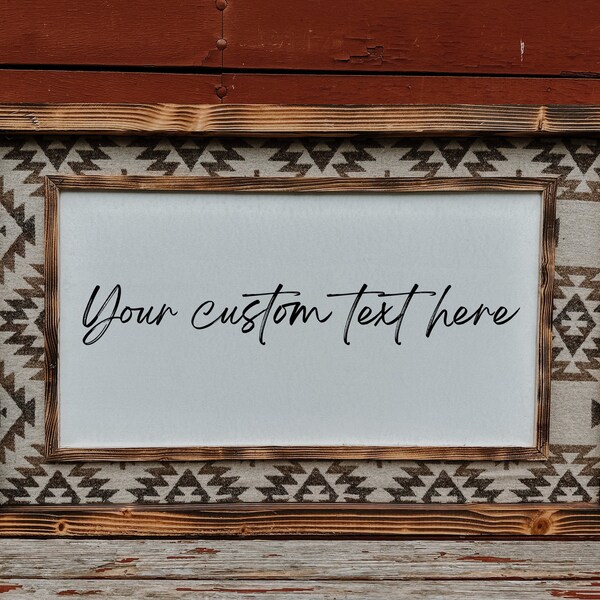 Your custom text here